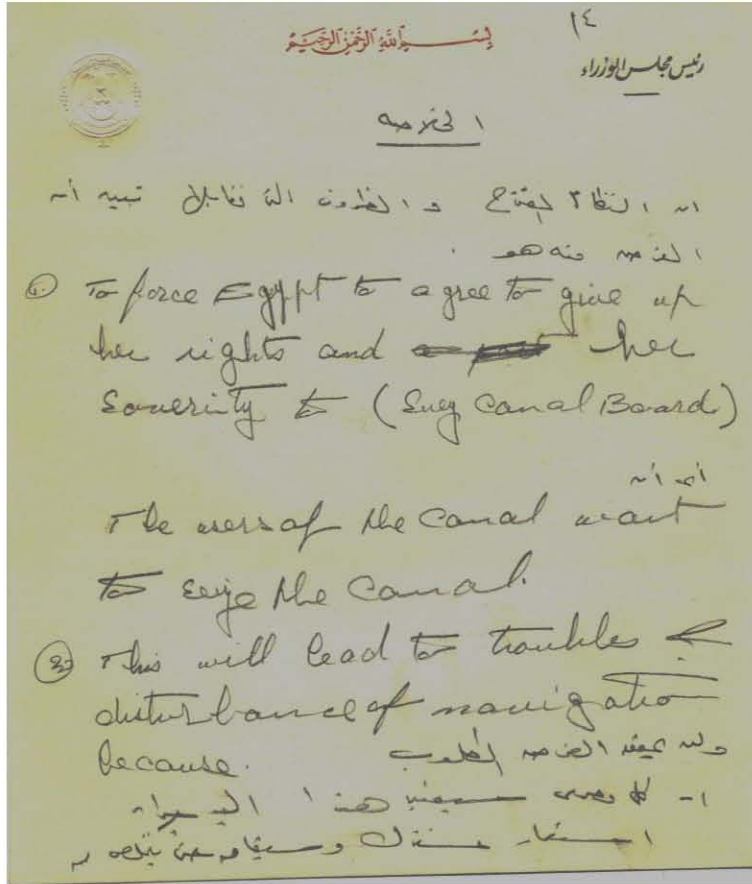 ١٤
بسم الله الرحمن الرحيم
رئيس مجلس الوزراء
الخلاصه
ان النظام المقترح و الظروف التى تقابل تبين أنه
الغرض منه هو
1. To force Egypt to agree to give up
her rights and her
Soverinty to (Suez Canal Board)
أى أن
The users of the Canal want
to seize the Canal.
2. This will lead to troubles &
disturbance of navigation
because. ولن يحقق الغرض المطلوب
١- كل مصرى سيعتبر هذا
استعمار مشترك وسيقاوم حتى يتخلص